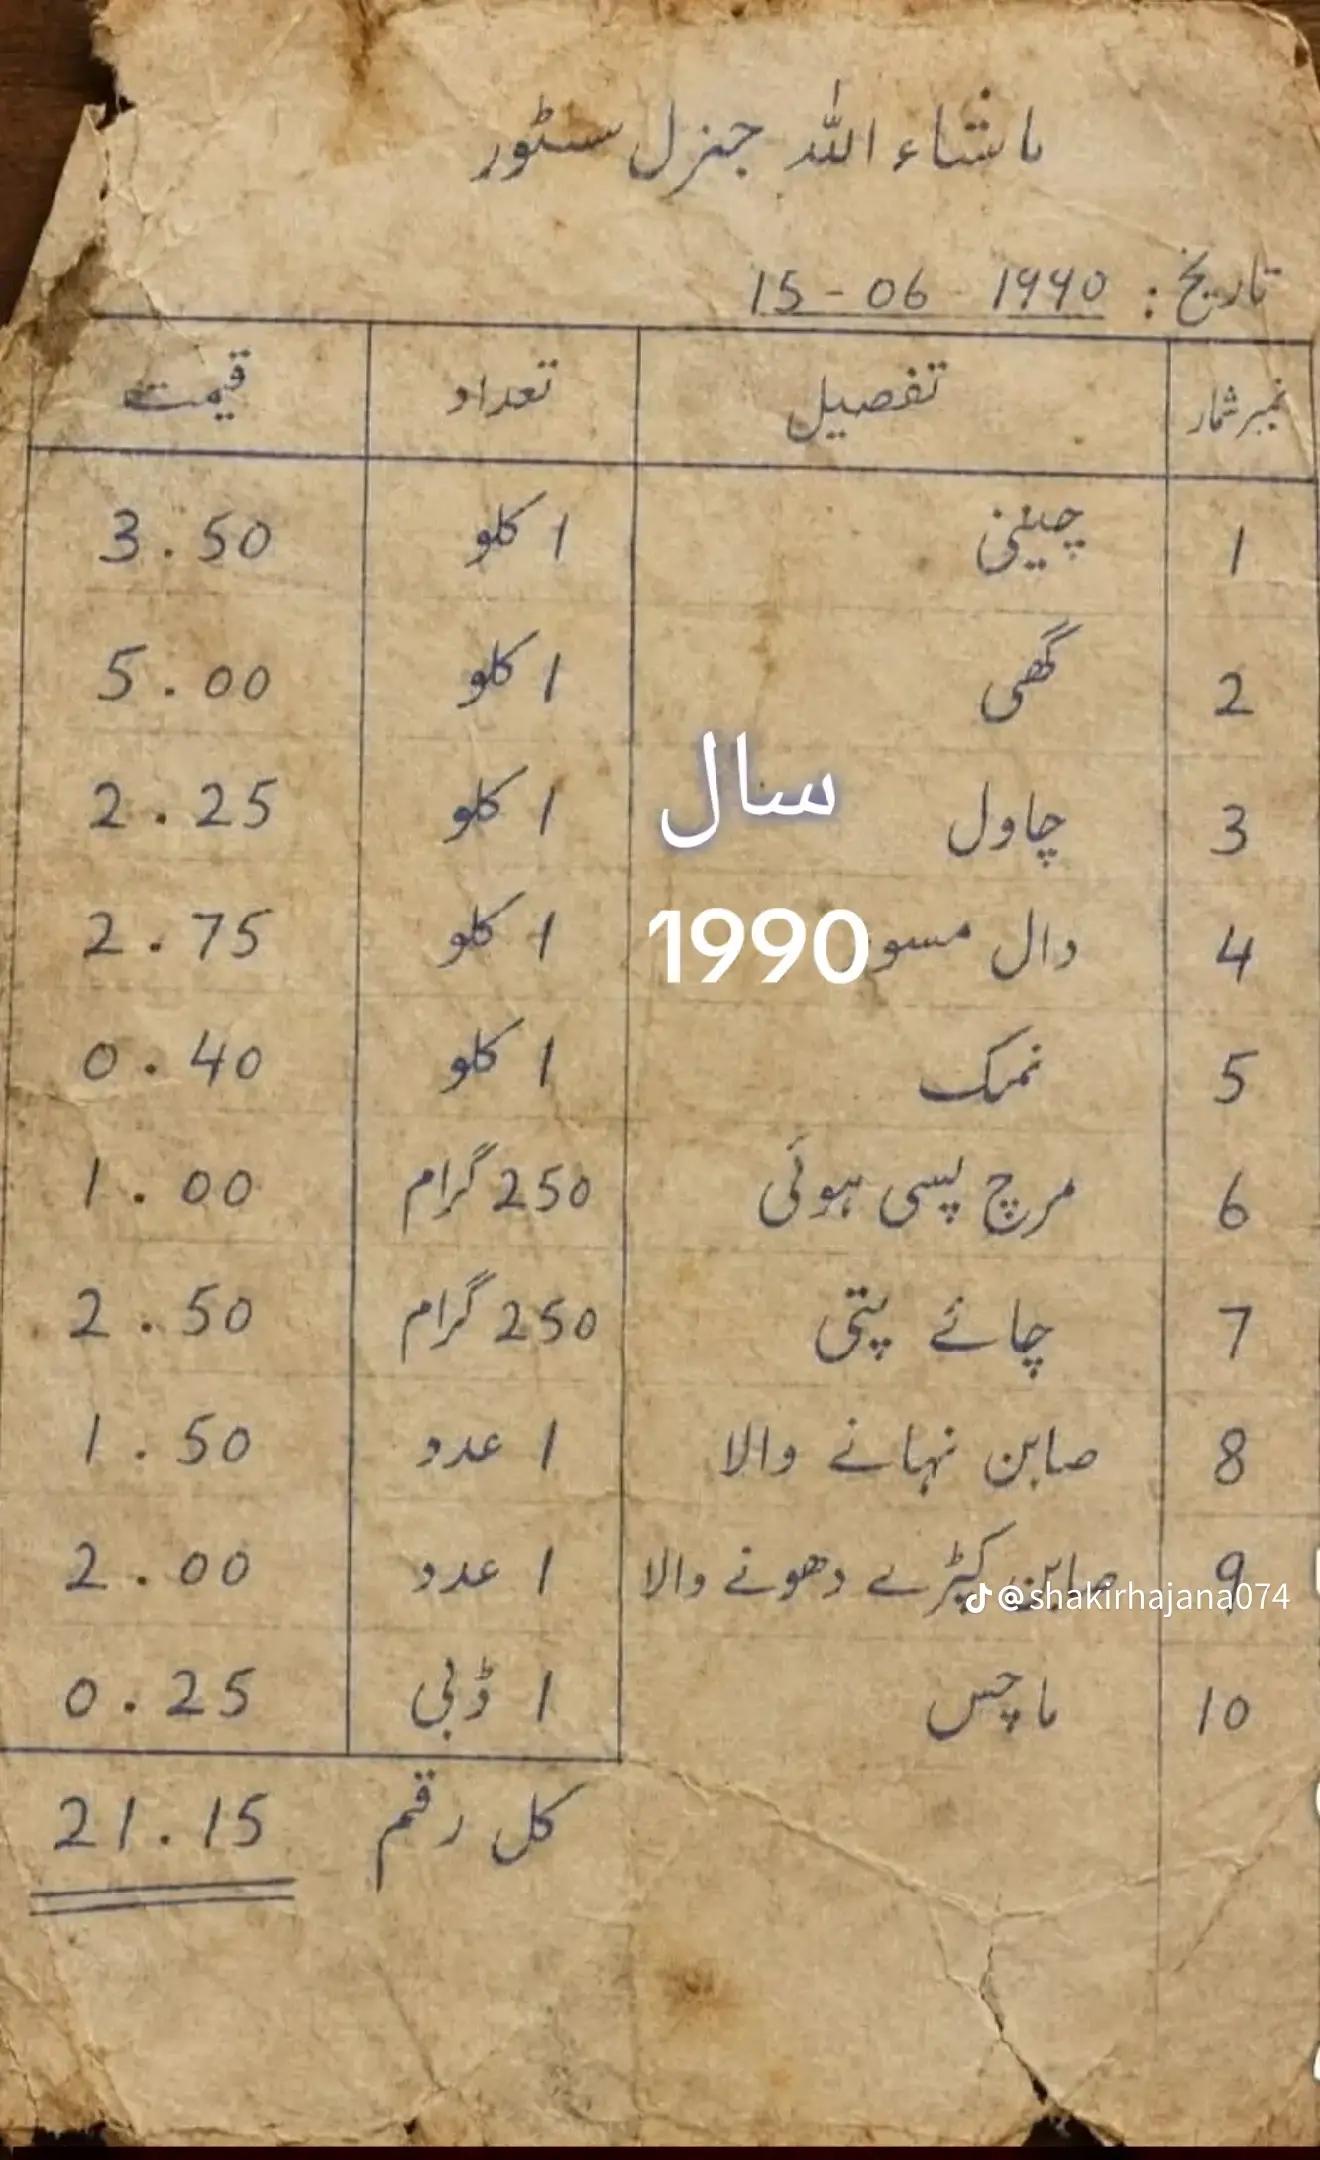 ماشاء اللہ جنرل سٹور
تاریخ: 15-06-1990
نمبر شمار تفصیل تعداد قیمت
1 چینی 1 کلو 3.50
2 گھی 1 کلو 5.00
سال
3 چاول 1 کلو 2.25
4 دال مسو 1 کلو 2.75
1990
5 نمک 1 کلو 0.40
6 مرچ پسی ہوئی 250 گرام 1.00
7 چائے پتی 250 گرام 2.50
8 صابن نہانے والا 1 عدد 1.50
9 صابن کپڑے دھونے والا 1 عدد 2.00
@shakirhajana074
10 ماچس 1 ڈبی 0.25
کل رقم 21.15